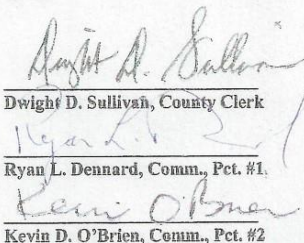 Dwight D. Sullivan
Dwight D. Sullivan, County Clerk
Ryan L.
Ryan L. Dennard, Comm., Pct. #1
Kevin O'Brien
Kevin D. O'Brien, Comm., Pct. #2